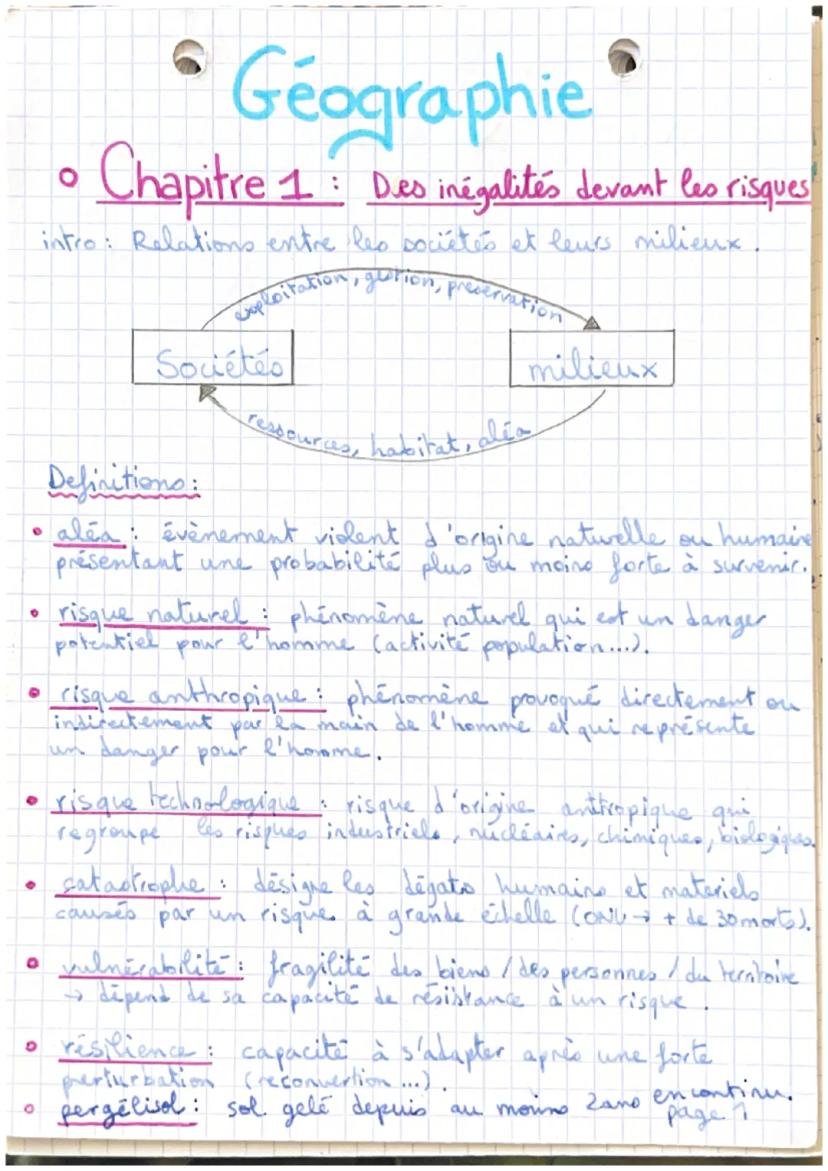 Géographie
• Chapitre 1 : Des inégalités devant les risques
intro : Relations entre les sociétés et leurs milieux.
exploitation, gestion, préservation
Sociétés
milieux
ressources, habitat, aléa
Definitions :
• aléa : évènement violent d'origine naturelle ou humaine
présentant une probabilité plus ou moins forte à survenir.
• risque naturel : phénomène naturel qui est un danger
potentiel pour l'homme (activité population...).
• risque anthropique : phénomène provoqué directement ou
indirectement par la main de l'homme et qui représente
un danger pour l'homme.
• risque technologique : risque d'origine antropique qui
regroupe les risques industriels, nucléaires, chimiques, biologiques.
• catastrophe : désigne les dégats humains et materiels
causés par un risque à grande échelle (ONU → + de 30 morts).
• vulnérabilité : fragilité des biens / des personnes / du territoire
→ dépend de sa capacité de résistance à un risque.
• résilience : capacité à s'adapter après une forte
perturbation (reconvertion...).
• pergélisol : sol gelé depuis au moins 2 ans en continu.
page 1